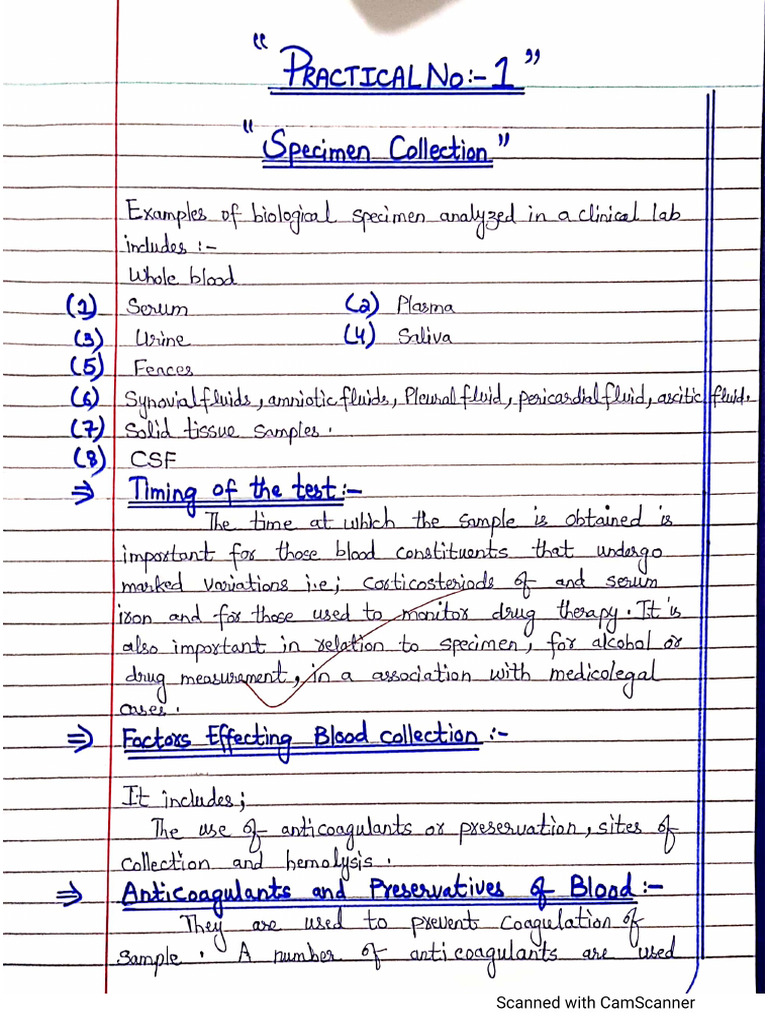 " PRACTICAL No:- 1 "
" Specimen Collection "
Examples of biological specimen analyzed in a clinical lab
includes :-
Whole blood
(1) Serum (2) Plasma
(3) Urine (4) Saliva
(5) Feaces
(6) Synovial fluids, amniotic fluids, Pleural fluid, pericardial fluid, ascitic fluid.
(7) Solid tissue samples.
(8) CSF
⇒ Timing of the test:-
The time at which the sample is obtained is
important for those blood constituents that undergo
marked variations i.e; corticosteriods of and serum
iron and for those used to monitor drug therapy. It is
also important in relation to specimen, for alcohol or
drug measurement, in a association with medicolegal
cases.
⇒ Factors Effecting Blood collection :-
It includes;
The use of anticoagulants or preservation, sites of
collection and hemolysis.
⇒ Anticoagulants and Preservatives of Blood:-
They are used to prevent coagulation of
sample. A number of anticoagulants are used
Scanned with CamScanner